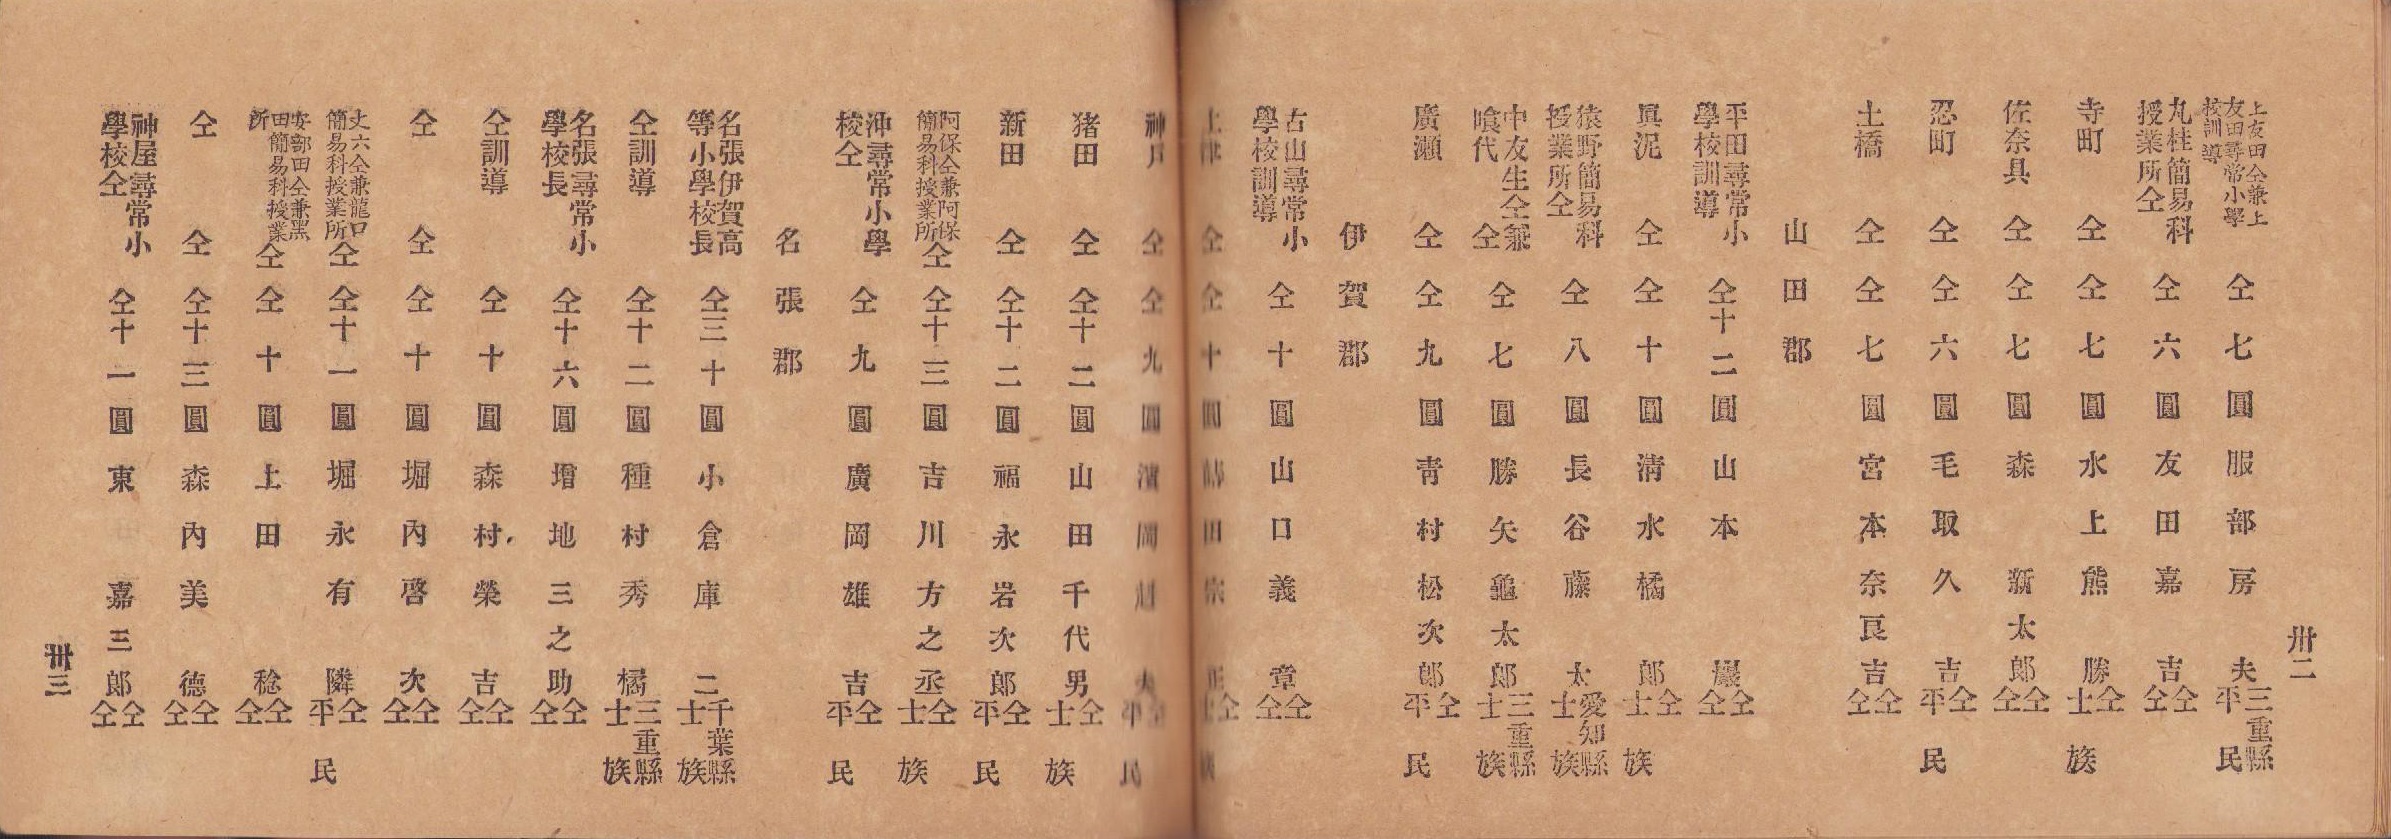 卅二
上友田仝兼上友田尋常小學校訓導 仝 七圓 服部房夫 三重縣平民
丸柱簡易科授業所仝 仝 六圓 友田嘉吉 仝仝
寺町 仝 仝 七圓 水上熊勝 仝士族
佐奈具 仝 仝 七圓 森新太郎 仝仝
忍町 仝 仝 六圓 毛取久吉 仝平民
土橋 仝 仝 七圓 宮本奈良吉 仝仝
山田郡
平田尋常小學校訓導 仝十二圓 山本巖 仝仝
眞泥 仝 仝 十圓 淸水橘郎 仝士族
猿野簡易科授業所仝 仝 八圓 長谷藤太 愛知縣士族
中友生仝兼喰代 仝 仝 七圓 勝矢龜太郎 三重縣士族
廣瀨 仝 仝 九圓 靑村松次郎 仝平民
伊賀郡
古山尋常小學校訓導 仝 十圓 山口義章 仝仝
上津 仝 仝 十圓 田宗正 仝士族
神戸 仝 仝 九圓 濱岡夫 仝平民
猪田 仝 仝十二圓 山田千代男 仝士族
新田 仝 仝十二圓 福永岩次郎 仝平民
阿保仝兼阿保簡易科授業所仝 仝十三圓 吉川方之丞 仝士族
沖尋常小學校仝 仝 九圓 廣岡雄吉 仝平民
名張郡
名張伊賀高等小學校長 仝三十圓 小倉庫二 千葉縣士族
仝訓導 仝十二圓 種村秀橘 三重縣士族
名張尋常小學校長 仝十六圓 增地三之助 仝仝
仝訓導 仝 十圓 森村榮吉 仝仝
仝 仝 仝 十圓 堀內啓次 仝仝
丈六仝兼龍口簡易科授業所仝 仝十一圓 堀永有隣 仝平民
安部田仝兼黑田簡易科授業所 仝 仝 十圓 上田稔 仝仝
仝 仝 仝十三圓 森內美德 仝仝
神屋尋常小學校仝 仝十一圓 東嘉三郎 仝仝
卅三